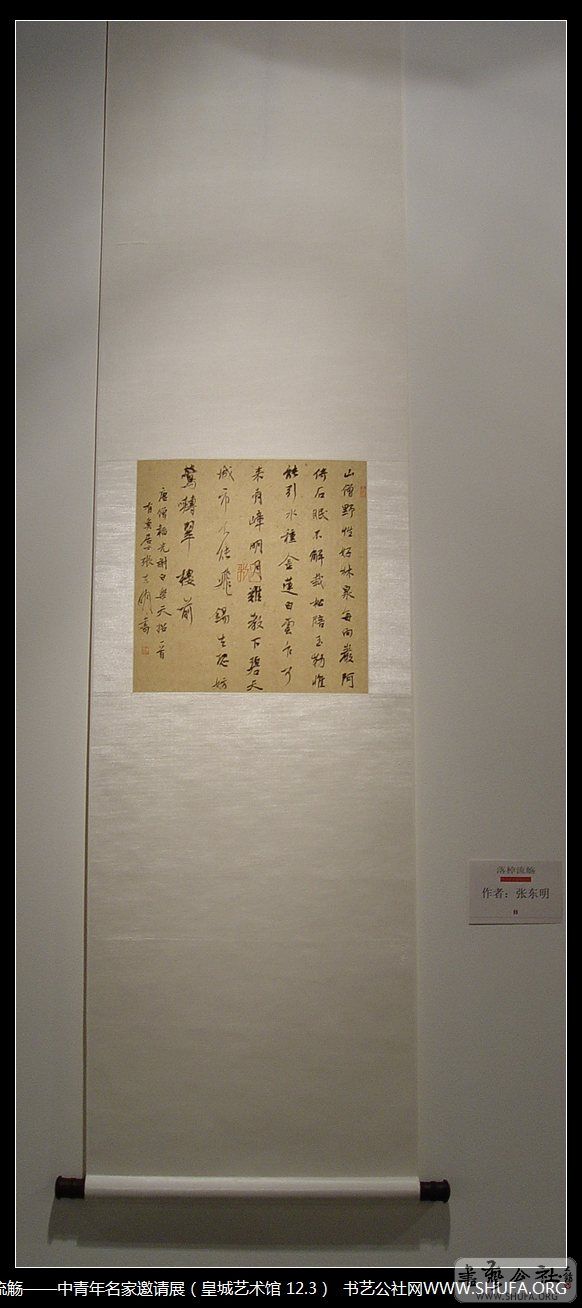 山僧野性好林泉每向巖阿
倚石眠不解栽松陪玉勒惟
能引水種金蓮白雲乍可
來青嶂明月難教下碧天
城市不能飛錫去恐妨
鶯囀翠樓前
唐僧韜光謝白樂天招一首
張
落棹流觞
作者：张东明
流觞——中青年名家邀请展（皇城艺术馆 12.3） 书艺公社网WWW.SHUFA.ORG
書艺公社
WWW.SHUFA.ORG